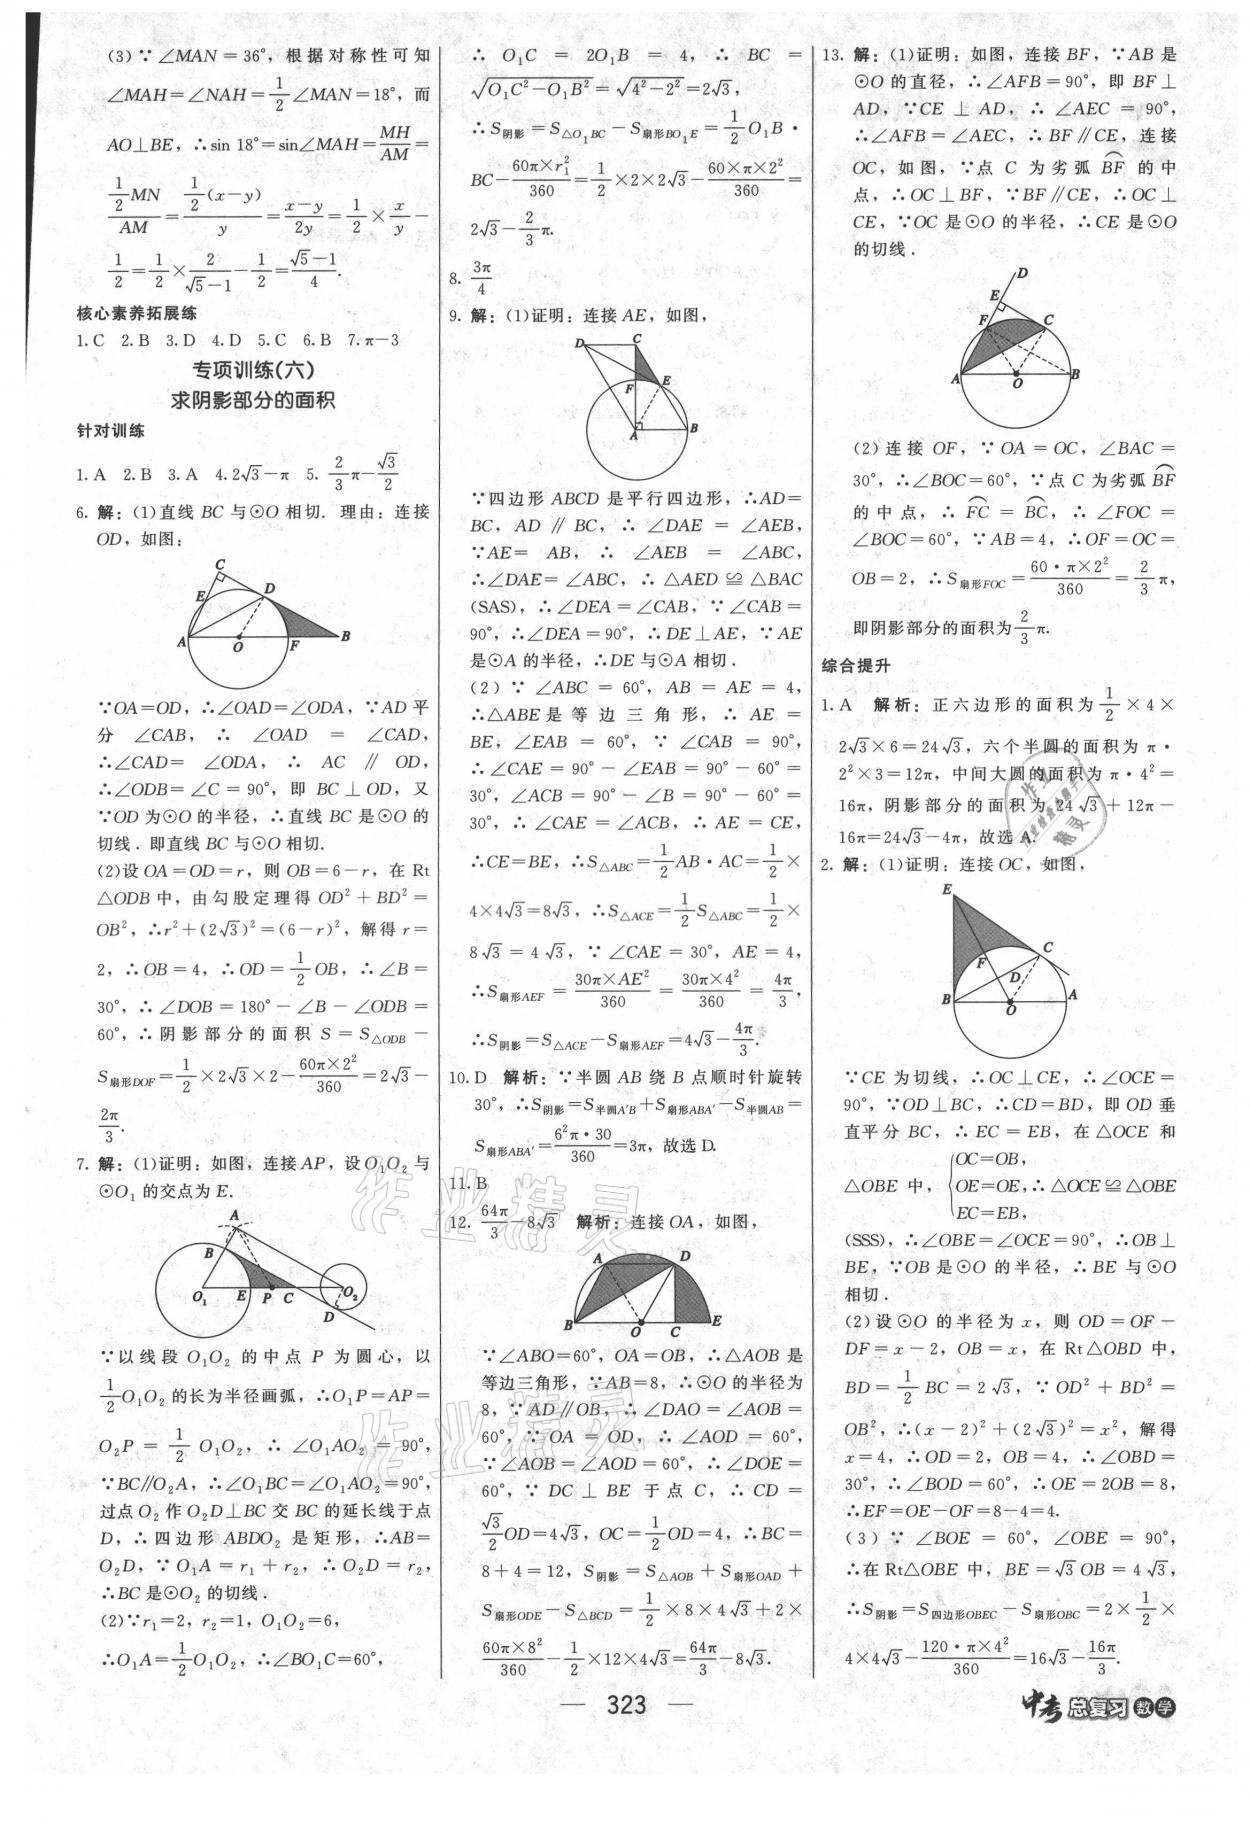 (3)∵∠MAN=36°,根据对称性可知
∠MAH=∠NAH=1/2∠MAN=18°,而
AO⊥BE,∴sin 18°=sin∠MAH=MH/AM=
(1/2MN)/AM=(1/2(x-y))/y=(x-y)/2y=1/2×x/y-
1/2=1/2×2/(√5-1)-1/2=(√5-1)/4.
核心素养拓展练
1.C 2.B 3.D 4.D 5.C 6.B 7.π-3
专项训练(六)
求阴影部分的面积
针对训练
1.A 2.B 3.A 4.2√3-π 5.2/3π-√3/2
6.解:(1)直线 BC 与⊙O 相切.理由:连接
OD,如图:
C
E
D
A
O
F
B
∵OA=OD,∴∠OAD=∠ODA,∵AD平
分∠CAB,∴∠OAD=∠CAD,
∴∠CAD=∠ODA,∴AC∥OD,
∴∠ODB=∠C=90°,即 BC⊥OD,又
∵OD为⊙O的半径,∴直线 BC 是⊙O的
切线.即直线 BC 与⊙O 相切.
(2)设 OA=OD=r,则 OB=6-r,在 Rt
△ODB中,由勾股定理得 OD²+BD²=
OB²,∴r²+(2√3)²=(6-r)²,解得 r=
2,∴OB=4,∴OD=1/2OB,∴∠B=
30°,∴∠DOB=180°-∠B-∠ODB=
60°,∴阴影部分的面积 S=S△ODB-
S扇形DOF=1/2×2√3×2-60π×2²/360=2√3-
2π/3.
7.解:(1)证明:如图,连接AP,设O₁O₂与
⊙O₁的交点为E.
A
B
O₁
E
P
C
O₂
D
∵以线段 O₁O₂ 的中点 P 为圆心,以
1/2O₁O₂的长为半径画弧,∴O₁P=AP=
O₂P=1/2O₁O₂,∴∠O₁AO₂=90°,
∵BC∥O₂A,∴∠O₁BC=∠O₁AO₂=90°,
过点O₂作O₂D⊥BC交BC的延长线于点
D,∴四边形 ABDO₂ 是矩形,∴AB=
O₂D,∵O₁A=r₁+r₂,∴O₂D=r₂,
∴BC是⊙O₂的切线.
(2)∵r₁=2,r₂=1,O₁O₂=6,
∴O₁A=1/2O₁O₂,∴∠BO₁C=60°,
∴O₁C=2O₁B=4,∴BC=
√(O₁C²-O₁B²)=√(4²-2²)=2√3,
∴S阴影=S△O₁BC-S扇形BO₁E=1/2O₁B·
BC-60π×r₁²/360=1/2×2×2√3-60×π×2²/360=
2√3-2/3π.
8.3π/4
9.解:(1)证明:连接AE,如图,
D
C
F
E
A
B
∵四边形ABCD是平行四边形,∴AD=
BC,AD∥BC,∴∠DAE=∠AEB,
∵AE=AB,∴∠AEB=∠ABC,
∴∠DAE=∠ABC,∴△AED≌△BAC
(SAS),∴∠DEA=∠CAB,∵∠CAB=
90°,∴∠DEA=90°,∴DE⊥AE,∵AE
是⊙A的半径,∴DE与⊙A相切.
(2)∵∠ABC=60°,AB=AE=4,
∴△ABE是等边三角形,∴AE=
BE,∠EAB=60°,∵∠CAB=90°,
∴∠CAE=90°-∠EAB=90°-60°=
30°,∠ACB=90°-∠B=90°-60°=
30°,∴∠CAE=∠ACB,∴AE=CE,
∴CE=BE,∴S△ABC=1/2AB·AC=1/2×
4×4√3=8√3,∴S△ACE=1/2S△ABC=1/2×
8√3=4√3,∵∠CAE=30°,AE=4,
∴S扇形AEF=30π×AE²/360=30π×4²/360=4π/3,
∴S阴影=S△ACE-S扇形AEF=4√3-4π/3.
10.D 解析:∵半圆AB绕B点顺时针旋转
30°,∴S阴影=S半圆A′B+S扇形ABA′-S半圆AB=
S扇形ABA′=6²π·30/360=3π,故选D.
11.B
12.64π/3-8√3 解析:连接OA,如图,
A
D
B
O
C
E
∵∠ABO=60°,OA=OB,∴△AOB是
等边三角形,∵AB=8,∴⊙O的半径为
8,∵AD∥OB,∴∠DAO=∠AOB=
60°,∵OA=OD,∴∠AOD=60°,
∵∠AOB=∠AOD=60°,∴∠DOE=
60°,∵DC⊥BE于点C,∴CD=
√3/2OD=4√3,OC=1/2OD=4,∴BC=
8+4=12,S阴影=S△AOB+S扇形OAD+
S扇形ODE-S△BCD=1/2×8×4√3+2×
60π×8²/360-1/2×12×4√3=64π/3-8√3.
13.解:(1)证明:如图,连接BF,∵AB是
⊙O的直径,∴∠AFB=90°,即BF⊥
AD,∵CE⊥AD,∴∠AEC=90°,
∴∠AFB=∠AEC,∴BF∥CE,连接
OC,如图,∵点C为劣弧BF的中
点,∴OC⊥BF,∵BF∥CE,∴OC⊥
CE,∵OC是⊙O的半径,∴CE是⊙O
的切线.
D
E
F
C
A
O
B
(2)连接OF,∵OA=OC,∠BAC=
30°,∴∠BOC=60°,∵点C为劣弧BF
的中点,∴FC=BC,∴∠FOC=
∠BOC=60°,∵AB=4,∴OF=OC=
OB=2,∴S扇形FOC=60·π×2²/360=2/3π,
即阴影部分的面积为2/3π.
综合提升
1.A 解析:正六边形的面积为1/2×4×
2√3×6=24√3,六个半圆的面积为π·
2²×3=12π,中间大圆的面积为π·4²=
16π,阴影部分的面积为24√3+12π-
16π=24√3-4π,故选A.
2.解:(1)证明:连接OC,如图,
E
C
F
D
B
O
A
∵CE为切线,∴OC⊥CE,∴∠OCE=
90°,∵OD⊥BC,∴CD=BD,即OD垂
直平分BC,∴EC=EB,在△OCE和
△OBE中,{OC=OB,
OE=OE,∴△OCE≌△OBE
EC=EB,
(SSS),∴∠OBE=∠OCE=90°,∴OB⊥
BE,∵OB是⊙O的半径,∴BE与⊙O
相切.
(2)设⊙O的半径为x,则OD=OF-
DF=x-2,OB=x,在Rt△OBD中,
BD=1/2BC=2√3,∵OD²+BD²=
OB²,∴(x-2)²+(2√3)²=x²,解得
x=4,∴OD=2,OB=4,∴∠OBD=
30°,∴∠BOD=60°,∴OE=2OB=8,
∴EF=OE-OF=8-4=4.
(3)∵∠BOE=60°,∠OBE=90°,
∴在Rt△OBE中,BE=√3OB=4√3,
∴S阴影=S四边形OBEC-S扇形OBC=2×1/2×
4×4√3-120·π×4²/360=16√3-16π/3.
— 323 —
中考 总复习 数学
作业精灵
作业精灵